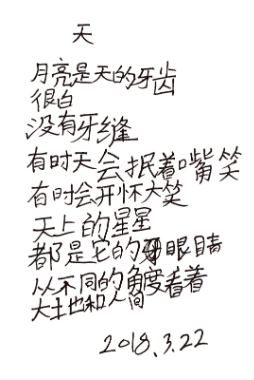 天
月亮是天的牙齿
很白
没有牙缝
有时天会抿着嘴笑
有时会开怀大笑
天上的星星
都是它的眼睛
从不同的角度看着
大土地和人间
2018.3.22